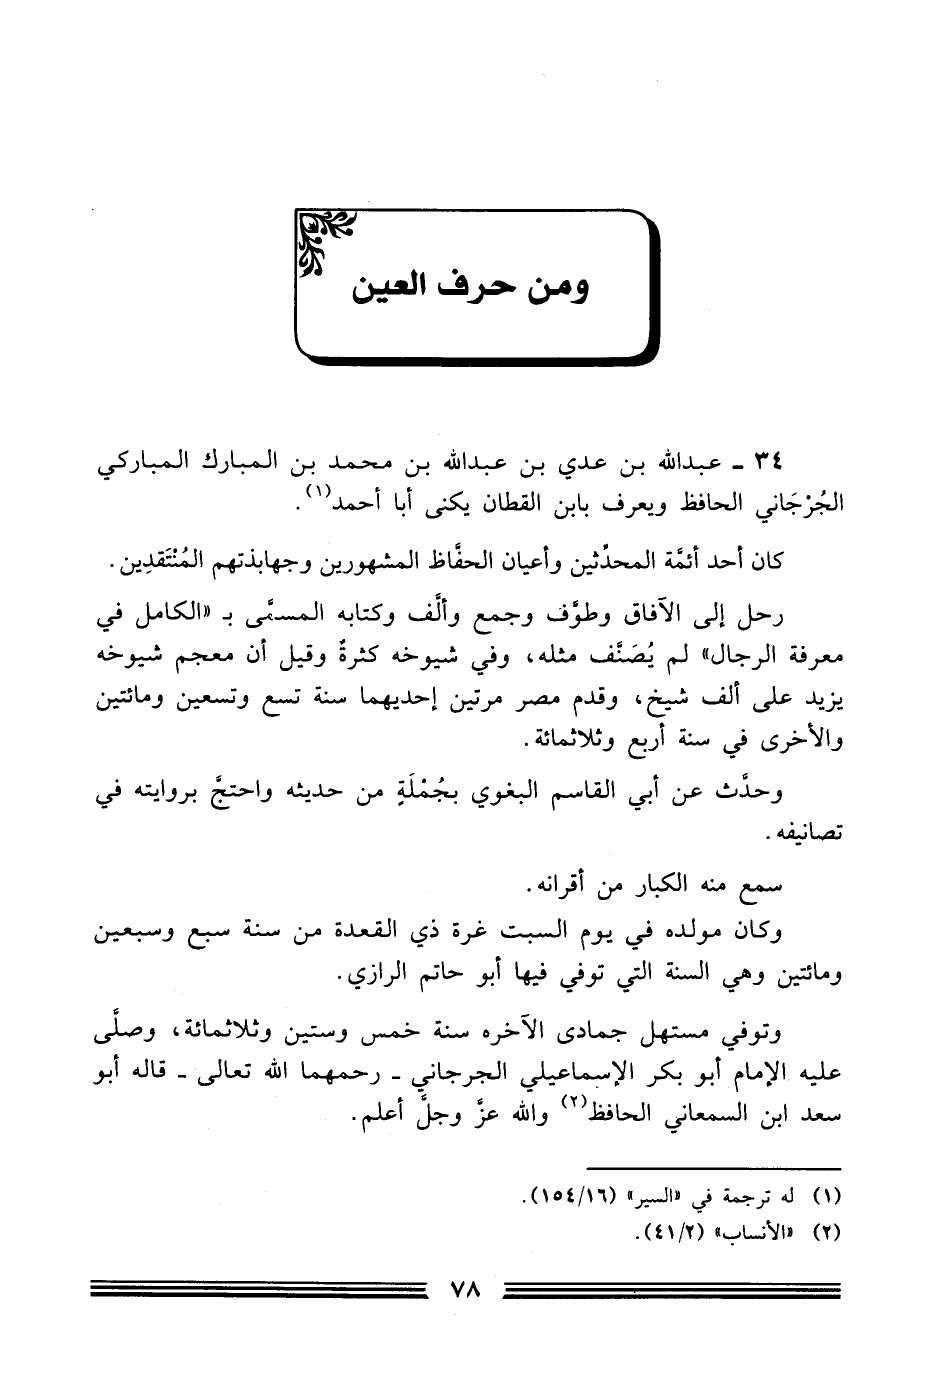 ومن حرف العين
٣٤ ـ عبدالله بن عدي بن عبدالله بن محمد بن المبارك المباركي
الجُرْجَاني الحافظ ويعرف بابن القطان يكنى أبا أحمد(١).
كان أحد أئمَّة المحدِّثين وأعيان الحفَّاظ المشهورين وجهابذتهم المُنْتَقدِين.
رحل إلى الآفاق وطوَّف وجمع وألَّف وكتابه المسمَّى بـ «الكامل في
معرفة الرجال» لم يُصَنَّف مثله، وفي شيوخه كثرةٌ وقيل أن معجم شيوخه
يزيد على ألف شيخ، وقدم مصر مرتين إحديهما سنة تسع وتسعين ومائتين
والأخرى في سنة أربع وثلاثمائة.
وحدَّث عن أبي القاسم البغوي بجُمْلَةٍ من حديثه واحتجَّ بروايته في
تصانيفه.
سمع منه الكبار من أقرانه.
وكان مولده في يوم السبت غرة ذي القعدة من سنة سبع وسبعين
ومائتين وهي السنة التي توفي فيها أبو حاتم الرازي.
وتوفي مستهل جمادى الآخره سنة خمس وستين وثلاثمائة، وصلَّى
عليه الإمام أبو بكر الإسماعيلي الجرجاني ـ رحمهما الله تعالى ـ قاله أبو
سعد ابن السمعاني الحافظ(٢) والله عزَّ وجلَّ أعلم.
(١) له ترجمة في «السير» (١٥٤/١٦).
(٢) «الأنساب» (٤١/٢).
٧٨